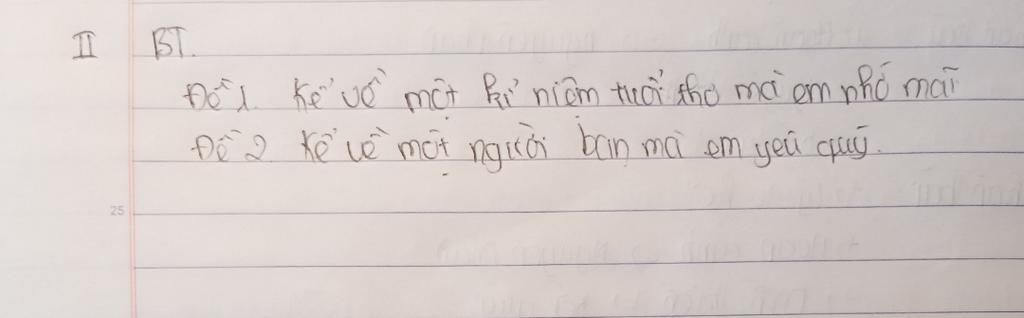 II BT.
Đề 1. Kể về một kỉ niệm tuổi thơ mà em nhớ mãi
Đề 2 Kể về một người bạn mà em yêu quý.
25